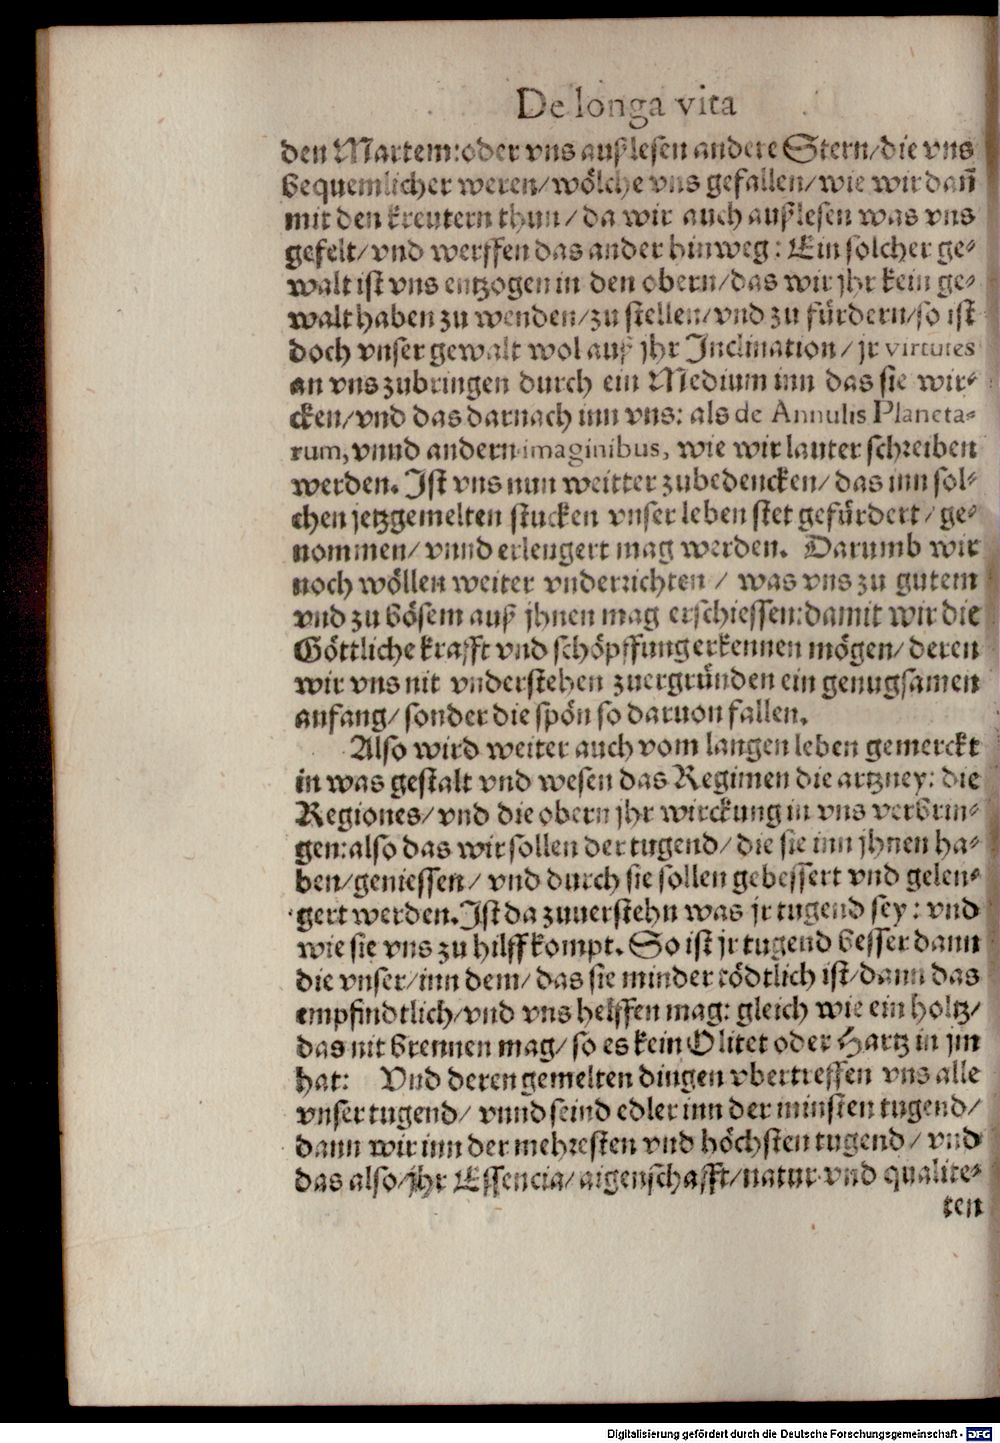 De longa vita
den Martem: oder vns außlesen andere Stern/ die vns
bequemlicher weren/ wölche vns gefallen/ wie wir dañ
mit den kreutern thun/ da wir auch außlesen was vns
gefelt/ vnd werffen das ander hinweg: Ein solcher ge-
walt ist vns entzogen in den obern/ das wir jhr kein ge-
walt haben zu wenden/ zu stellen/ vnd zu fürdern/ so ist
doch vnser gewalt wol auß jhr Inclination/ jr virtutes
an vns zubringen durch ein Medium inn das sie wir-
cken/ vnd das darnach inn vns: als de Annulis Planeta-
rum, vnnd andern imaginibus, wie wir lauter schreiben
werden. Ist vns nun weitter zubedencken/ das inn sol-
chen jetzgemelten stucken vnser leben stet gefürdert/ ge-
nommen/ vnnd erlengert mag werden. Darumb wir
noch wöllen weiter vnderrichten/ was vns zu gutem
vnd zu bösem auß jhnen mag erschiessen: damit wir die
Göttliche krafft vnd schöpffung erkennen mögen/ deren
wir vns nit vnderstehen zuergründen ein genugsamen
anfang/ sonder die spön so daruon fallen.
Also wird weiter auch vom langen leben gemerckt
in was gestalt vnd wesen das Regimen die artzney: die
Regiones/ vnd die obern jhr wirckung in vns verbrin-
gen: also das wir sollen der tugend/ die sie inn jhnen ha-
ben/ geniessen/ vnd durch sie sollen gebessert vnd gelen-
gert werden. Ist da zuuerstehn was jr tugend sey: vnd
wie sie vns zu hilff kompt. So ist jr tugend besser dann
die vnser/ inn dem/ das sie minder tödtlich ist/ dann das
empfindtlich/ vnd vns helffen mag: gleich wie ein holtz/
das nit brennen mag/ so es kein Olitet oder Hartz in jm
hat: Vnd deren gemelten dingen vbertreffen vns alle
vnser tugend/ vnnd seind edler inn der minsten tugend/
dann wir inn der mehresten vnd höchsten tugend/ vnd
das also/ jhr Essencia/ aigenschafft/ natur vnd qualite-
ten
Digitalisierung gefördert durch die Deutsche Forschungsgemeinschaft - DFG